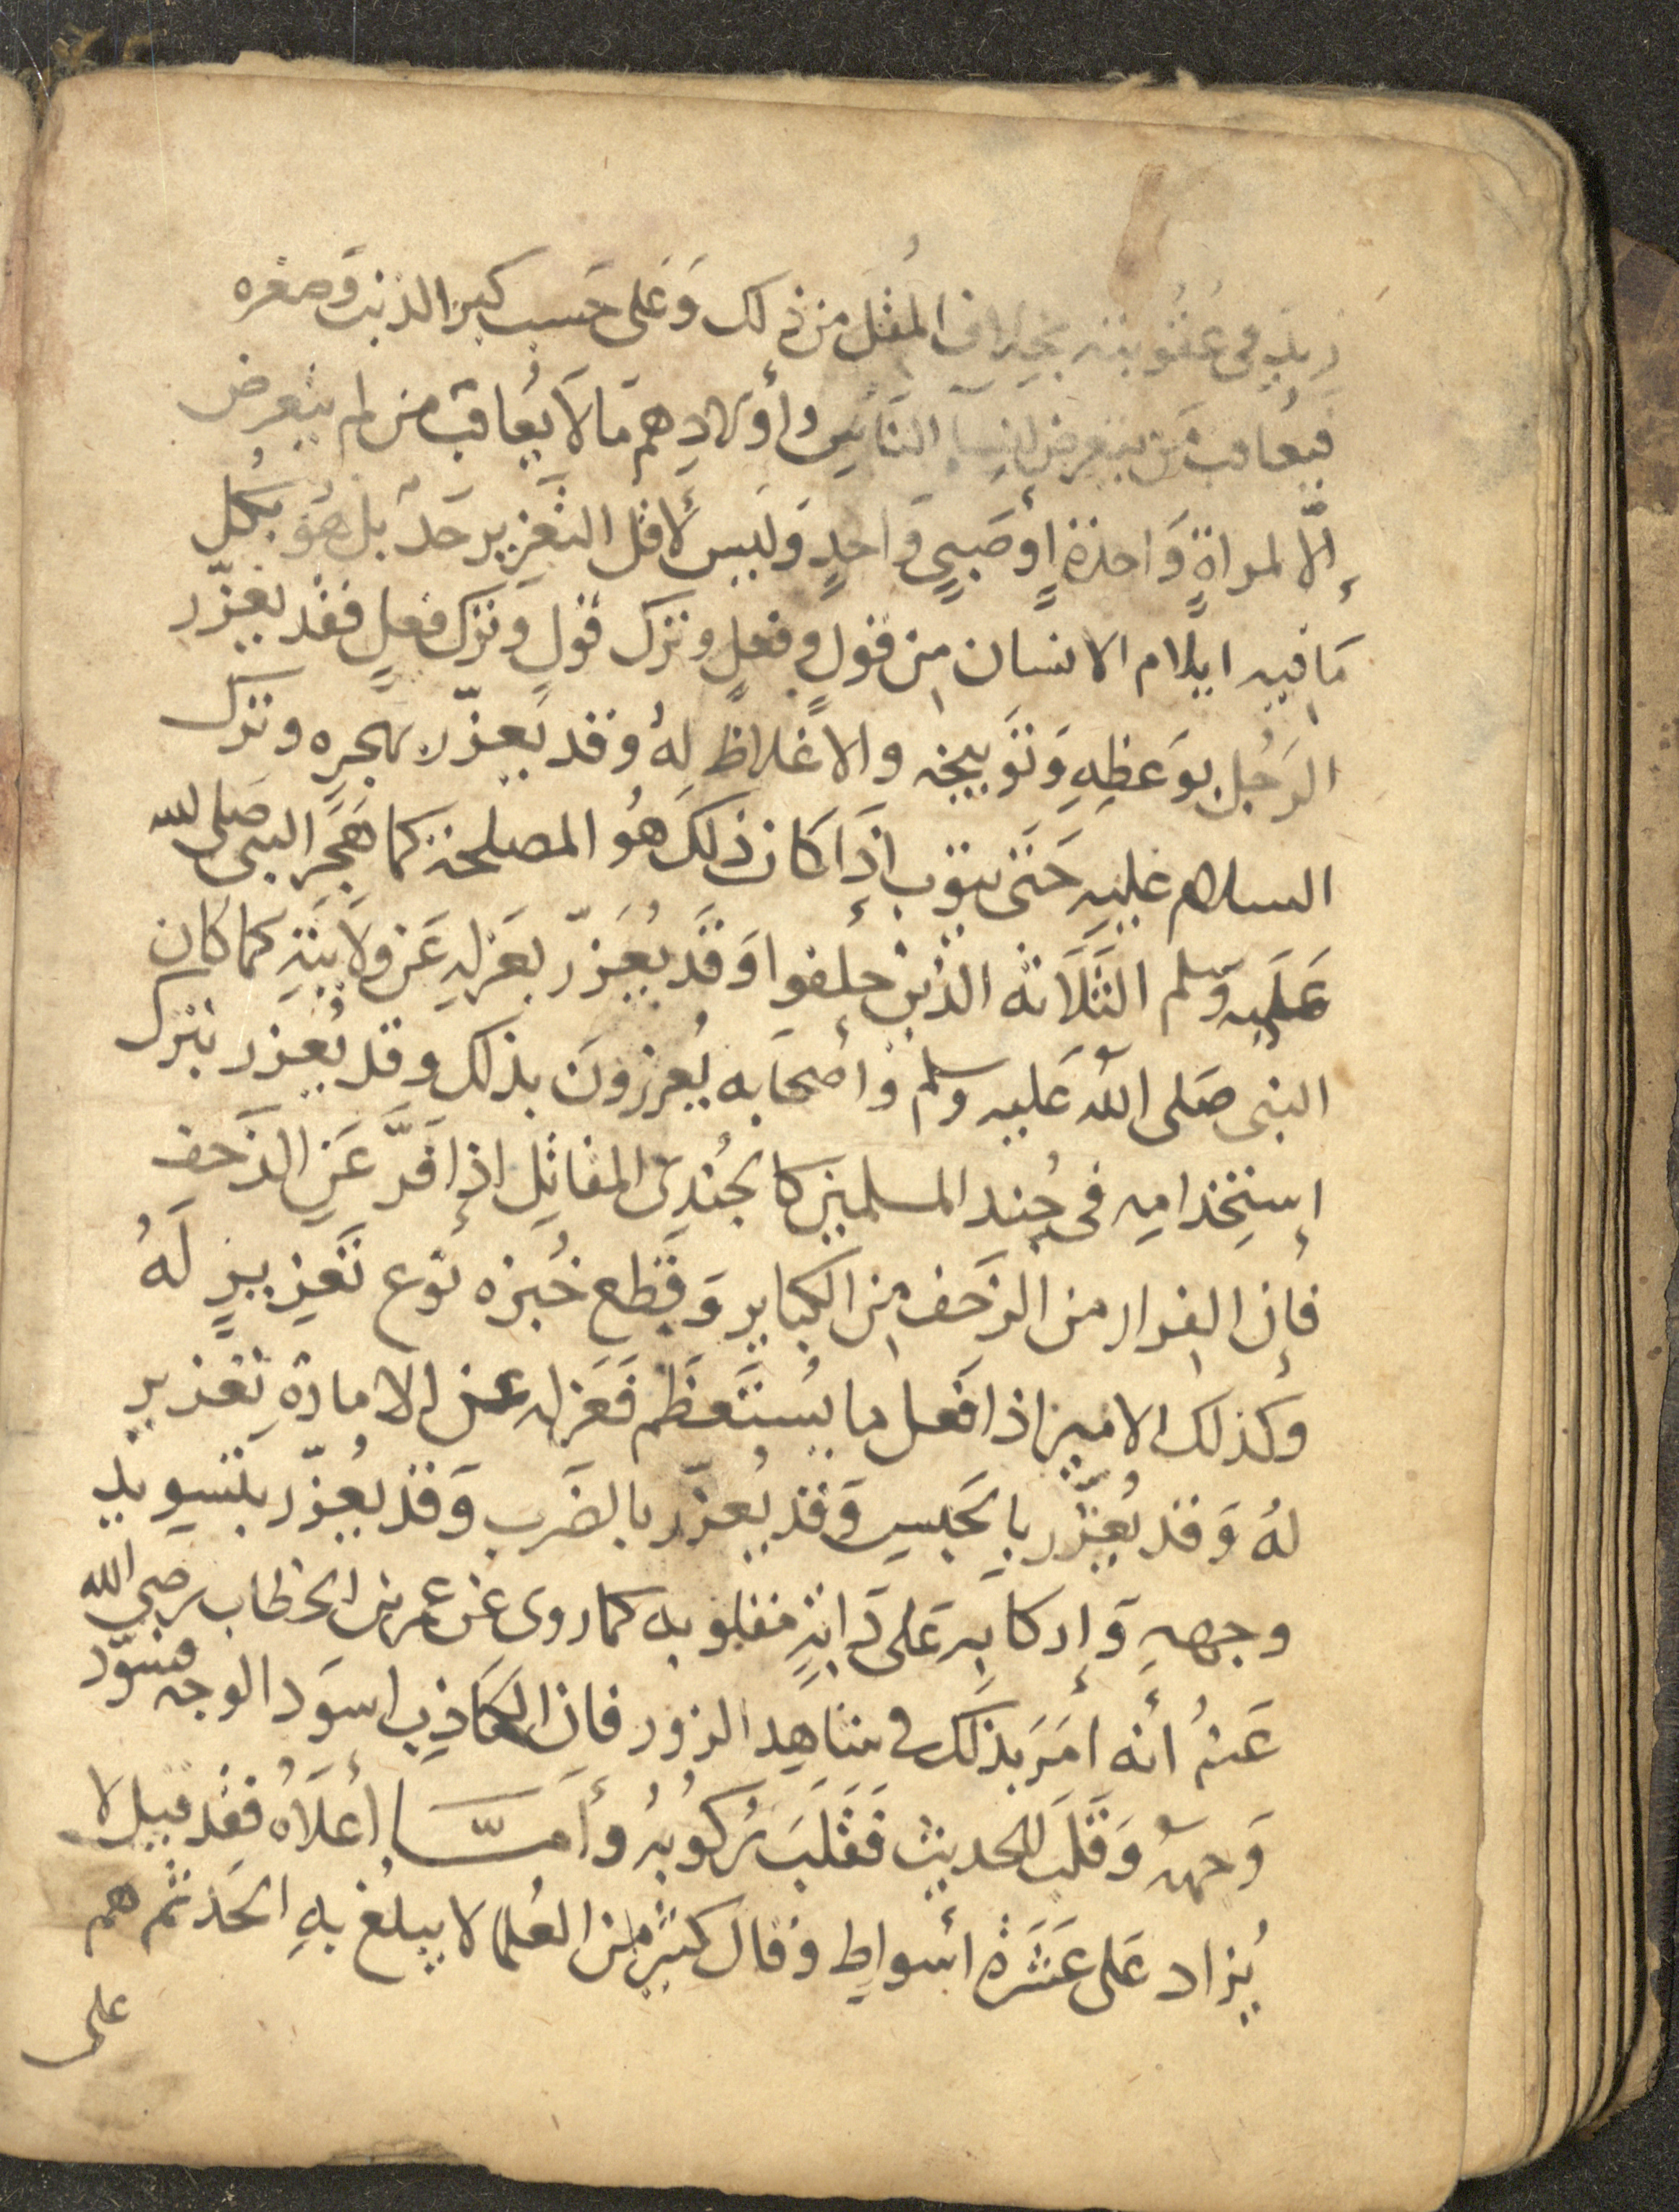 زيد في عُقُوبته بخلاف المُقِلّ من ذلك وَعَلى حَسب كبر الذنب وَصغره
فيُعاقب مَن يتعرض لنِسآءِ النَّاسِ وأولادِهم مَا لاَ يُعاقب من لم يتعرض
إلّا لمراةٍ وَاحدةٍ أو صَبيٍ وَاحدٍ وَليس لأقل التَعزير حَدّ بل هُوَ بكُل
مَا فيه ايلام الانسان مِن قولٍ وفعلٍ وترك قولٍ وَترك فعلٍ فقد يعزّر
الرَجُل بوَعظِهِ وَتَوبيخه والاغلاظ لهُ وَقد يُعزّر بهجرِه وترك
السلام عَليهِ حَتى يتوب إذَا كَان ذلكَ هُو المصلحة كما هَجَر النبى صَلى الله
عَلَيه وَسلم الثَلَاثَه الذين خلفوا وَقَد يُعَزّر بعَزلهِ عَن ولَايَتهِ كما كان
النبى صَلى اللهُ عَليه وسلم وَأصحَابه يُعزرونَ بذلك وقد يُعزر بترك
إستِخدامِه فى جُند المسلمين كالجُندِىّ المقاتِل إذا فَرَّ عَنِ الزَحف
فإن الفِرار من الزَحف مِن الكبايرِ وَقَطع خُبزه نَوع تَعزِيرٍ لَهُ
وَكذلك الامير اذا فَعل ما يُستَعظَم فَعَزله عَن الامارةِ تَعزير
لهُ وَقد يُعَزّر بالحَبسِ وَقد يُعَزّر بالضَربِ وَقد يُعزّر بتسويدِ
وجههِ وَإركابهِ عَلى دَابةٍ مقلوبه كما روى عَن عمر بن الخطاب رضى الله
عَنهُ أنه أمَرَ بذلك فى شاهِد الزور فان الكَاذِب اسوَد الوجه فسَوّد
وَجهَهُ وَقَلَبَ الحديث فَقَلَبَ رُكُوبهُ وأمّا أعلَاهُ فقد قيل لا
يُزاد عَلى عَشَرة أسواطٍ وَقال كثير من العُلما لا يبلغ بهِ الحَد ثم هم
على